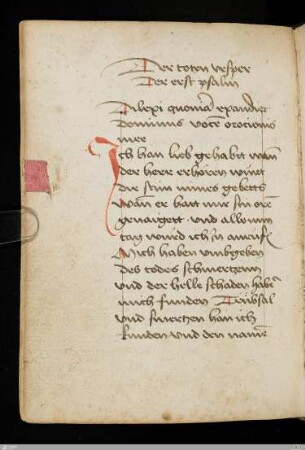 Der toten vesper
Der erst psalm
Dilexi quoniā exaudiet
dominus vocē orocionis
mee
Ich han lieb gehabt wan
der here erhören wirt
die stim mines gebetts
Wan er hatt mir sin ore
genaigett vnd allenin
tag würd ich in anrüfē
Mich haben vmbgeben
des todes schmertzenn
vnd der helle schaden habē
mich funden Trübsal
vnd smertzen han ich
funden vnd den namē